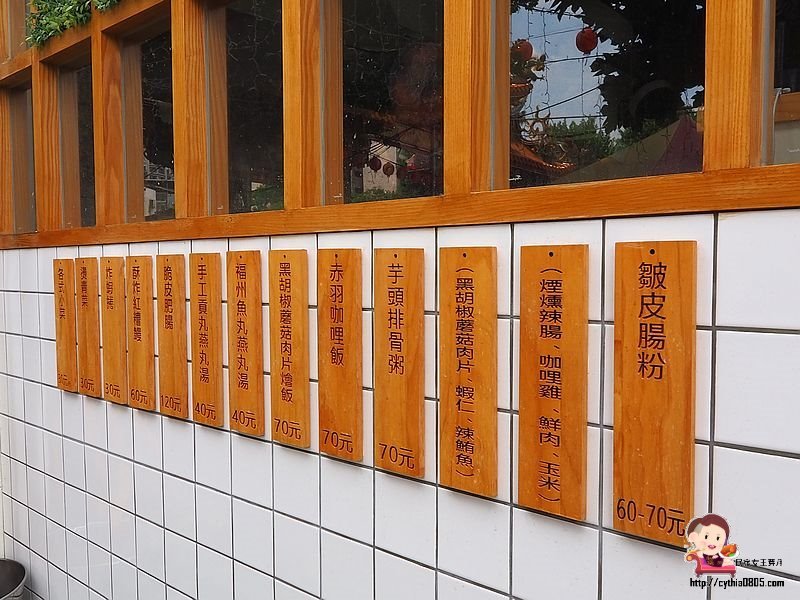 皺皮腸粉
60-70元
（煙燻辣腸、咖哩雞、鮮肉、玉米）
（黑胡椒蘑菇肉片、蝦仁、辣鮪魚）
芋頭排骨粥
70元
赤羽咖哩飯
70元
黑胡椒蘑菇肉片燴飯
70元
福州魚丸燕丸湯
40元
手工貢丸燕丸湯
40元
脆皮肥腸
120元
酥炸紅糟鰻
60元
30元
燙青菜
30元
各式小菜
30元
http://cythia0805.com/